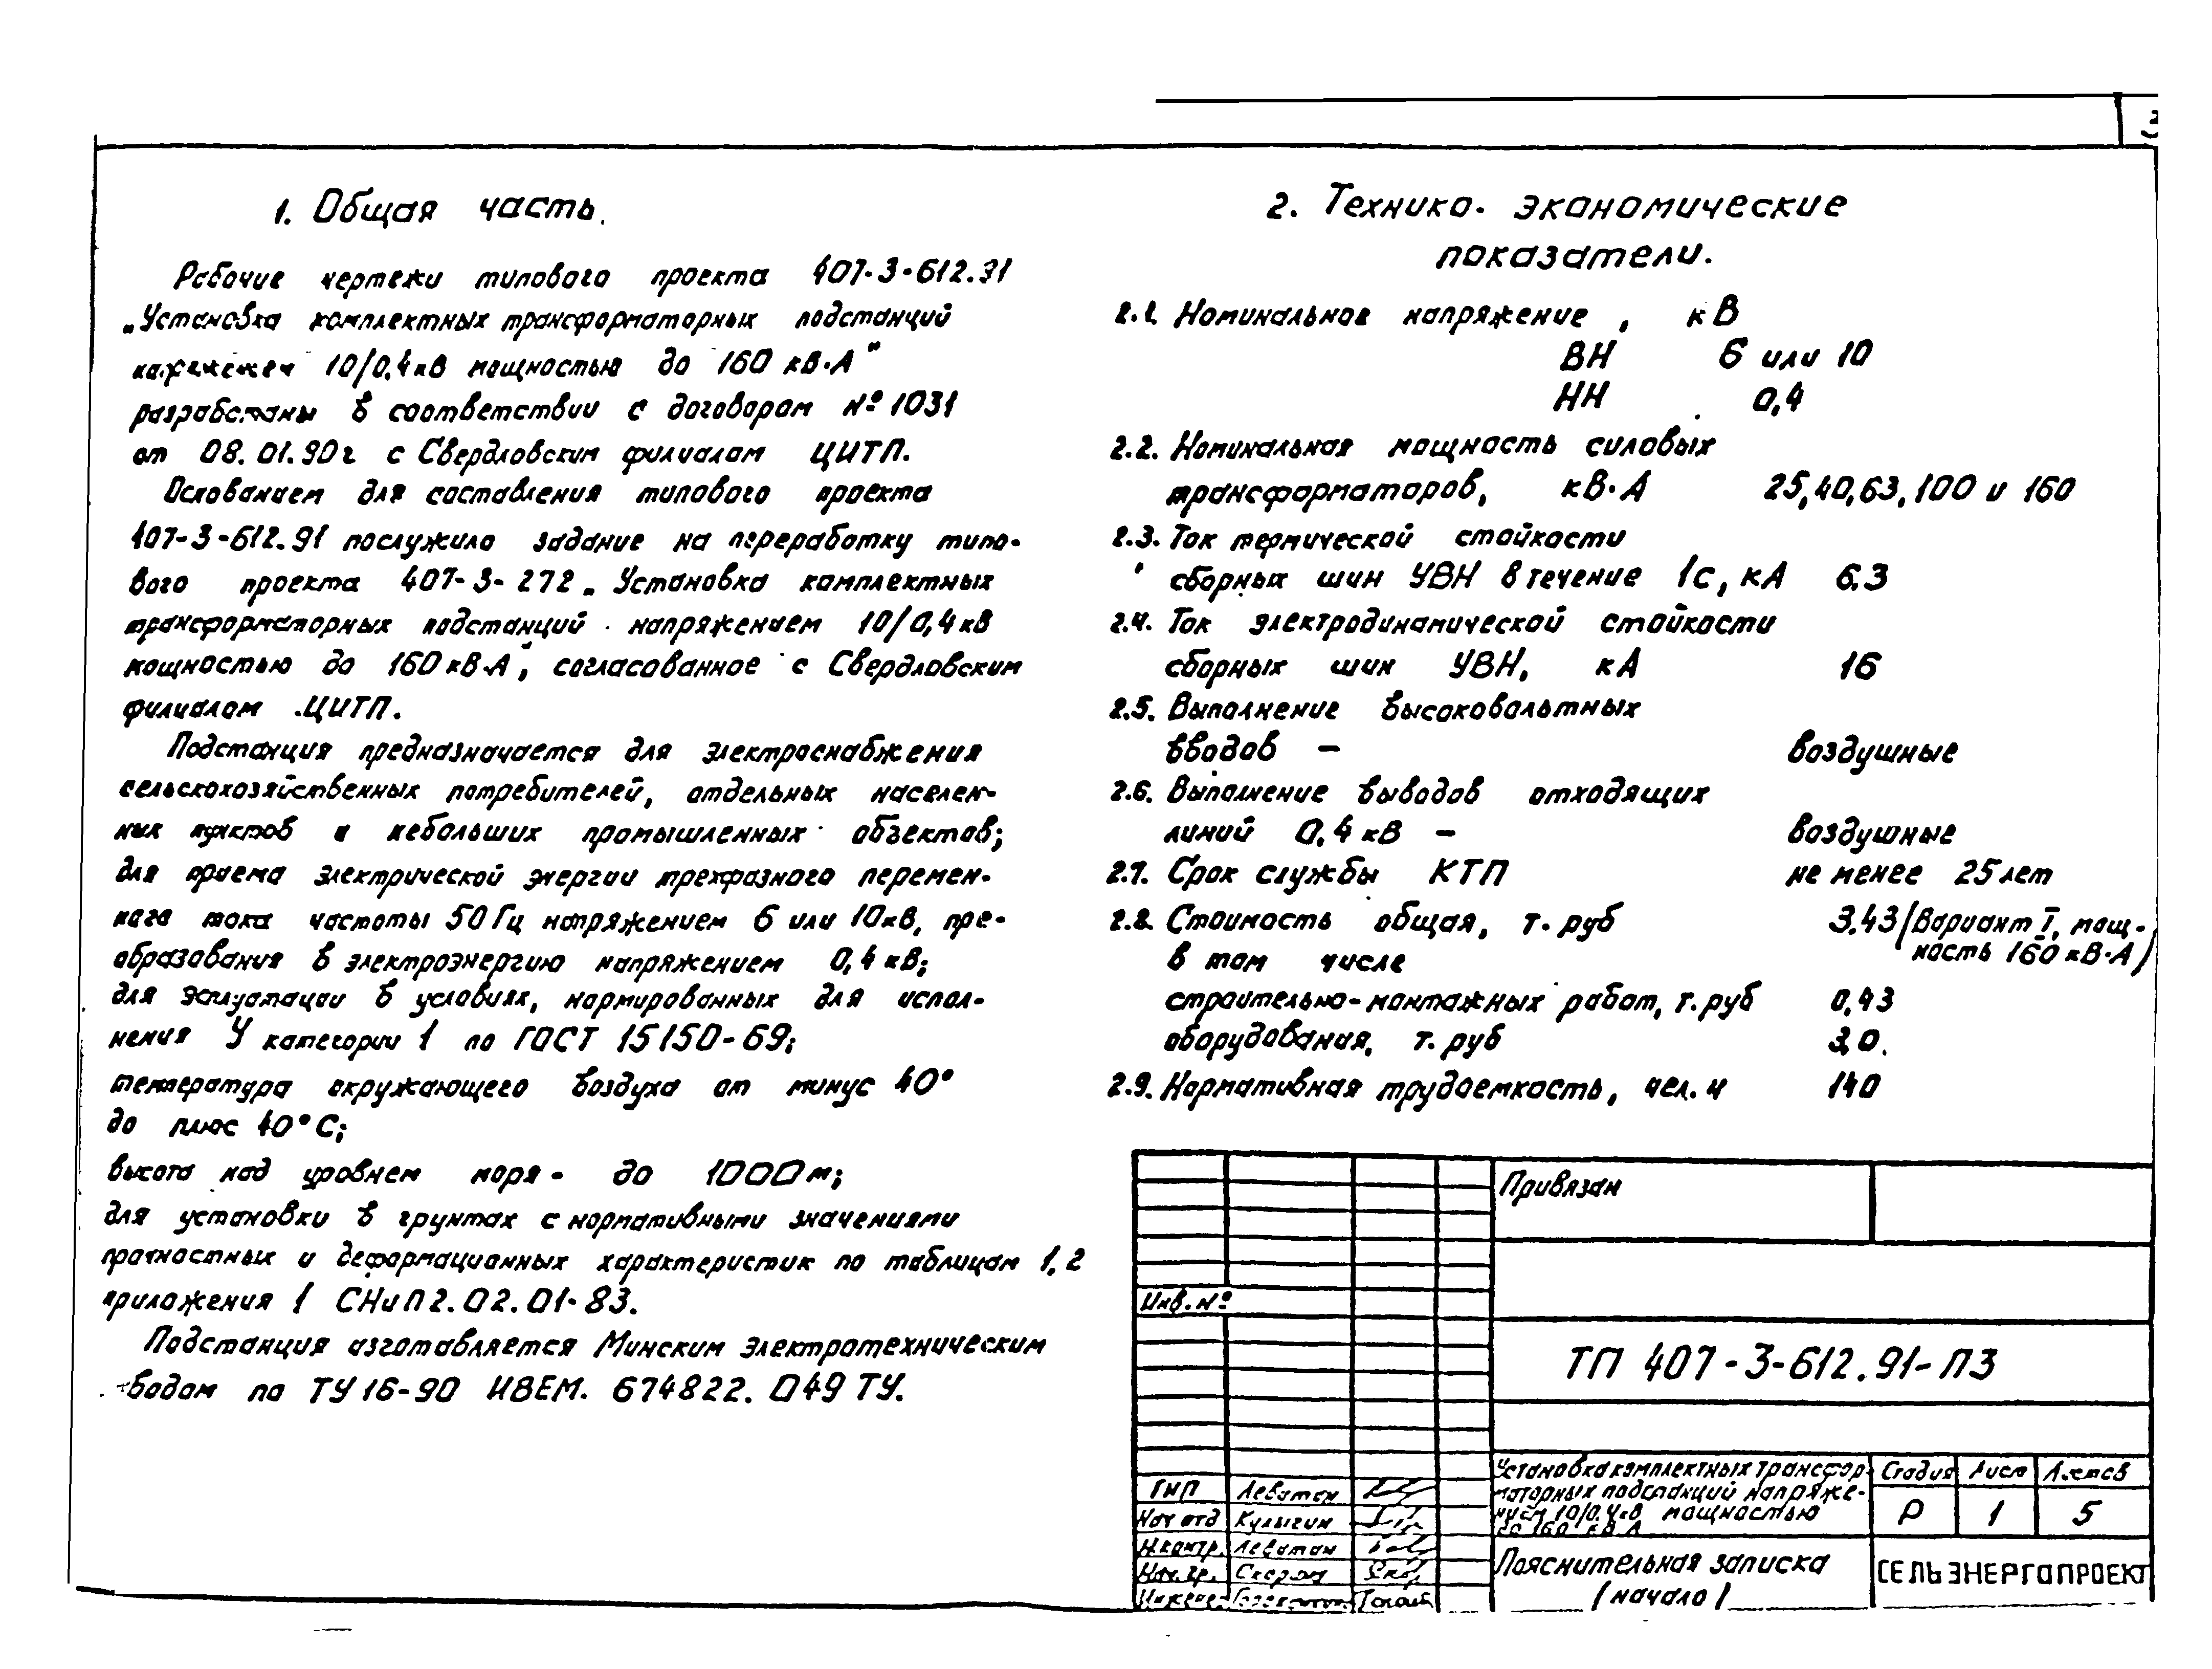 3
1. Общая часть.
Рабочие чертежи типового проекта 407-3-612.91
„Установка комплектных трансформаторных подстанций
10/0,4 кВ мощностью до 160 кВ·А"
разработаны в соответствии с договором №1031
от 08.01.90г с Свердловским филиалом ЦИТП.
Основанием для составления типового проекта
407-3-612.91 послужило задание на переработку типо-
вого проекта 407-3-272 „Установка комплектных
трансформаторных подстанций напряжением 10/0,4 кВ
мощностью до 160 кВ·А", согласованное с Свердловским
филиалом ЦИТП.
Подстанция предназначается для электроснабжения
сельскохозяйственных потребителей, отдельных населен-
ных пунктов и небольших промышленных объектов;
для приема электрической энергии трехфазного перемен-
ного тока частоты 50 Гц напряжением 6 или 10кВ, пре-
образования в электроэнергию напряжением 0,4 кВ;
для эсплуатации в условиях, нормированных для испол-
нения У категории 1 по ГОСТ 15150-69;
температура окружающего воздуха от минус 40°
до плюс 40°С;
высота над уровнем моря - до 1000м;
для установки в грунтах с нормативными значениями
прочностных и деформационных характеристик по таблицам 1,2
приложения 1 СНиП 2.02.01-83.
Подстанция изготавляется Минским электротехническим
водом по ТУ 16-90 ИВЕМ. 674822. 049 ТУ.
2. Технико- экономические
показатели.
2.1. Номинальное напряжение, кВ
ВН 6 или 10
НН 0,4
2.2. Номинальная мощность силовых
трансформаторов, кВ·А 25,40,63,100 и 160
2.3. Ток термической стойкости
сборных шин УВН в течение 1с, кА 6.3
2.4. Ток электродинамической стойкости
сборных шин УВН, кА 16
2.5. Выполнение высоковольтных
вводов – воздушные
2.6. Выполнение выводов отходящих
линий 0,4 кВ – воздушные
2.7. Срок службы КТП не менее 25 лет
2.8. Стоимость общая, т. руб 3.43 (Вариант I, мощ-
ность 160 кВ·А)
в том числе
строительно-монтажных работ, т. руб 0,43
оборудования, т. руб 3,0.
2.9. Нормативная трудоемкость, чел. ч 140
Привязан
Инв. №
ТП 407-3-612.91-ПЗ
Установка комплектных трансфор-
маторных подстанций напряже-
нием 10/0.4кВ мощностью
до 160 кВ А
Стадия Лист Листов
Р 1 5
Пояснительная записка
(начало)
СЕЛЬЭНЕРГОПРОЕКТ
ГИП Леватан
Нач отд Кулыгин
Н.контр. Леватан
Нач. гр.
Инженер